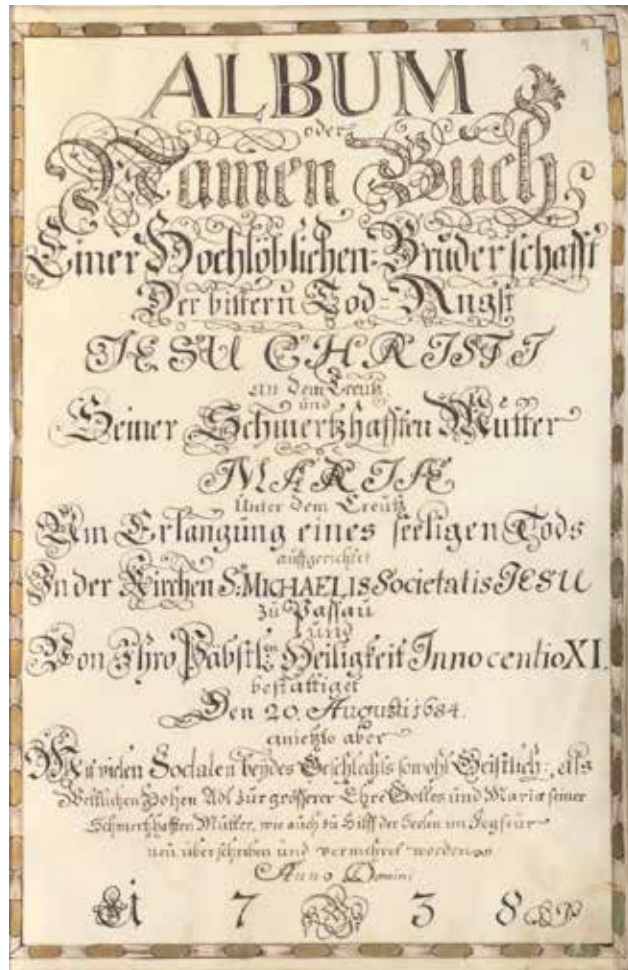 ALBUM
oder
Namen Buch
Einer Hochlöblichen-Bruderschafft
Der bittern Tod-Angst
JESU CHRISTI
an dem Creutz
und
Seiner Schmertzhafften Mutter
MARIÆ
Unter dem Creutz
Um Erlangung eines seeligen Tods
auffgerichtet
In der Kirchen S: MICHAELIS Societatis JESU
zu Passau
und
Von Ihro Päbstl:en Heiligkeit Innocentio XI.
bestättiget
Den 20. Augusti 1684.
anietzto aber
Mit vielen Sodalen beydes Geschlechts sowohl Geistlich: als
Weltlichen Hohen Adl zur grösserer Ehre Gottes und Mariæ seiner
Schmertzhafften Mutter, wie auch zu Hilff der Seelen im Fegfeür
neu überschriben und vermehret worden
Anno Domini
1 7 3 8